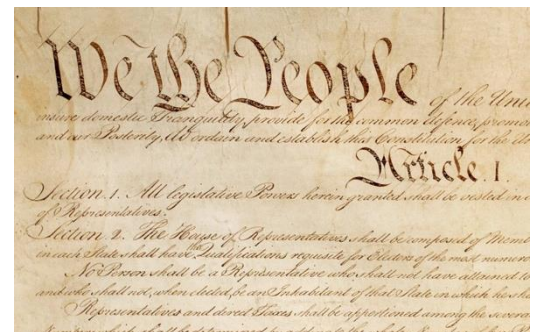 We the People of the Uni
insure domestic Tranquility, provide for the common defence, promo
and our Posterity, do ordain and establish this Constitution for the
Article. I.
Section. 1. All legislative Powers herein granted shall be vested in
of Representatives.
Section. 2. The House of Representatives shall be composed of Memb
in each State shall have the Qualifications requisite for Electors of the most numero
No Person shall be a Representative who shall not have attained to
and who shall not, when elected, be an Inhabitant of that State in which he sha
Representatives and direct Taxes shall be apportioned among the severa